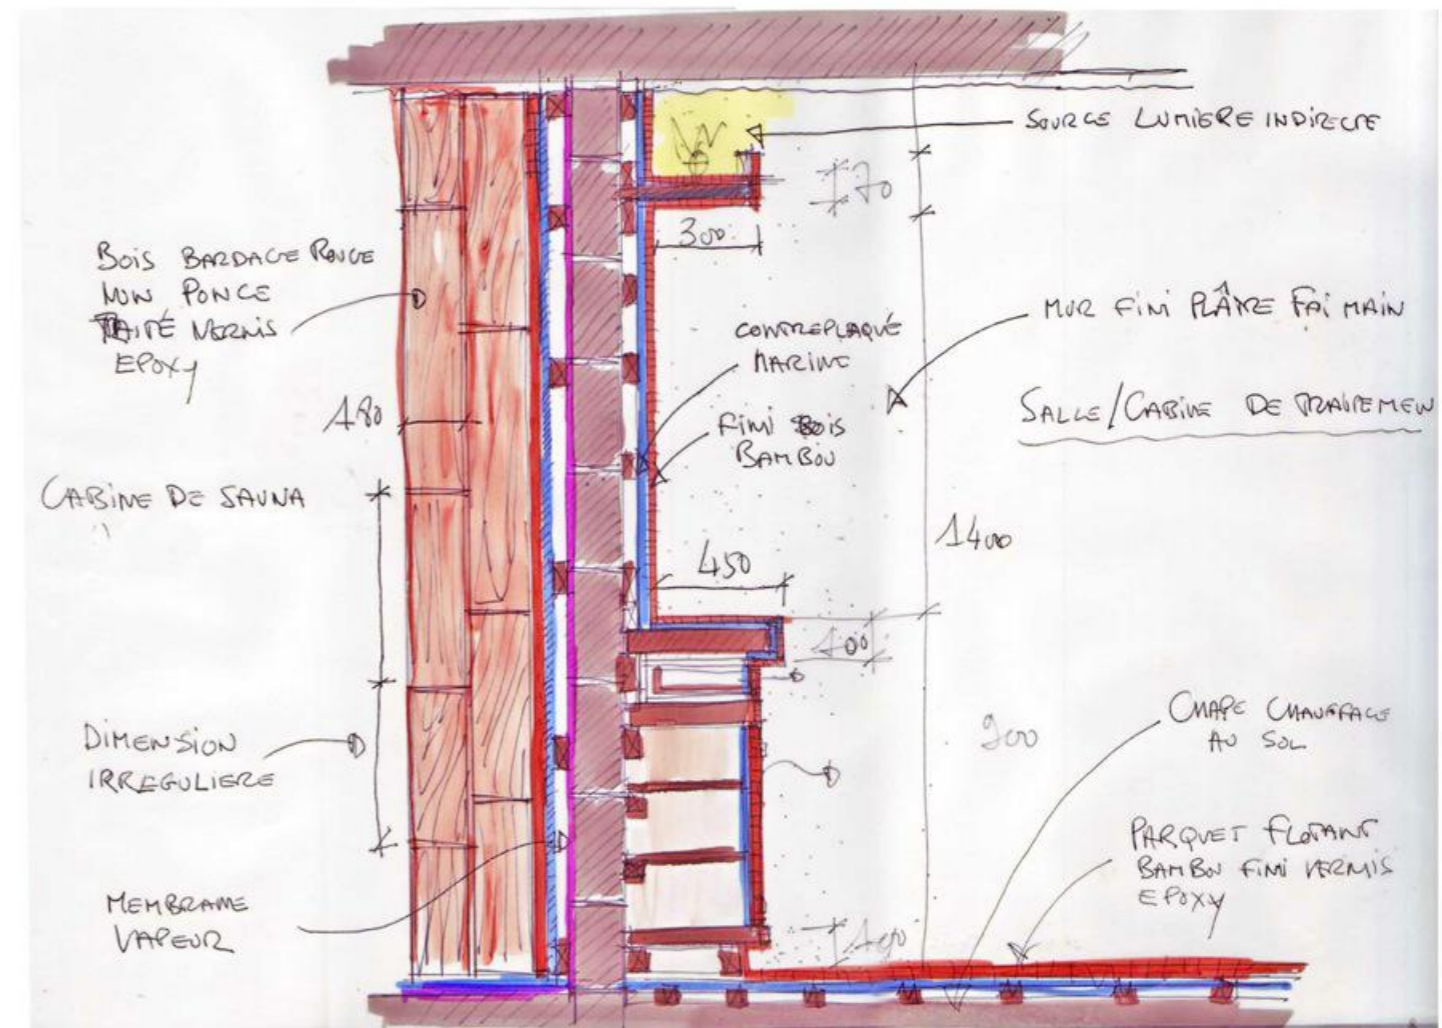 SOURCE LUMIERE INDIRECTE
70
300
BOIS BARDAGE ROUGE
NON PONCE
TRAITÉ VERNIS
EPOXY
MUR FINI PLÂTRE FAI MAIN
CONTREPLAQUÉ
MARINE
180
FINI BOIS
BAMBOU
SALLE/CABINE DE TRAITEMEN
CABINE DE SAUNA
1400
450
100
DIMENSION
IRREGULIERE
900
CHAPE CHAUFFAGE
AU SOL
PARQUET FLOTANT
BAMBOU FINI VERNIS
EPOXY
MEMBRANE
VAPEUR
100